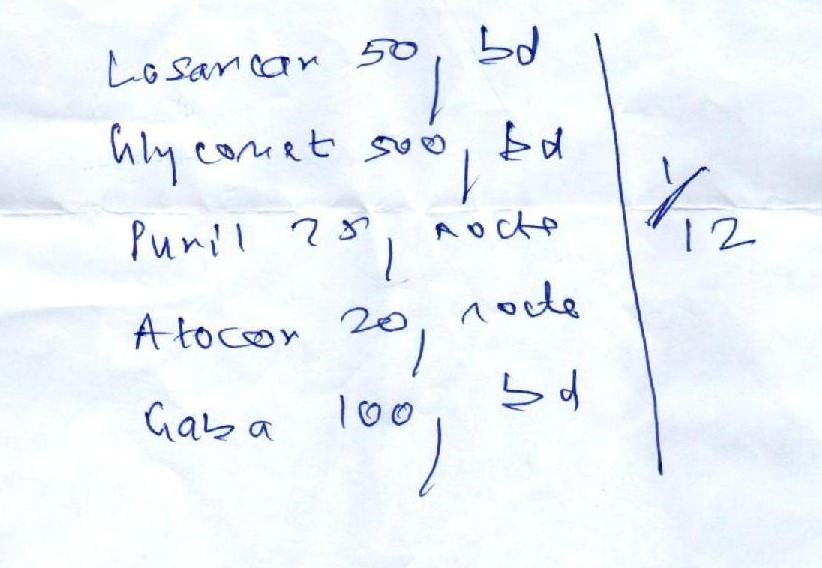 Losarcar 50, bd
Glycomet 500, bd
Puril 25, nocte
Atocor 20, nocte
Gaba 100, bd
1/12